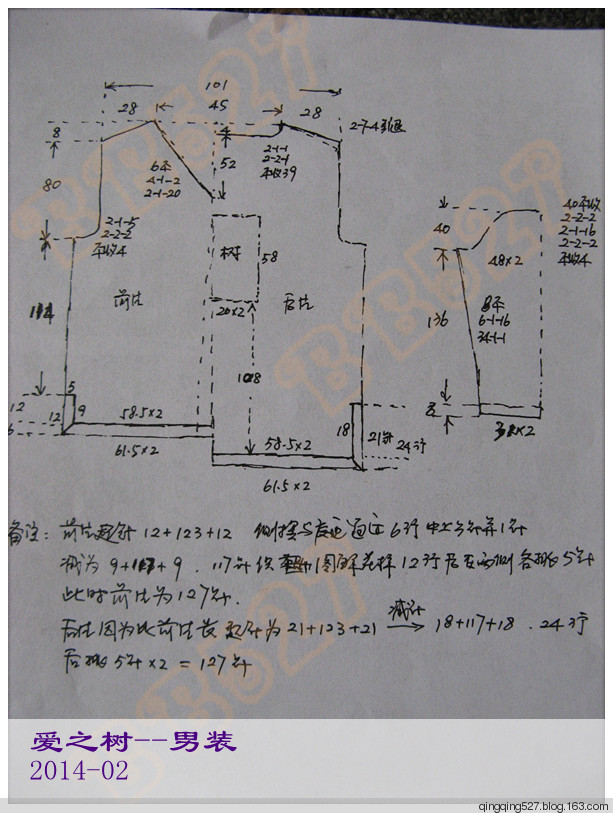 101
28
45
28
8
4
2-7-4引退
80
6平
4-1-2
2-1-20
52
2-1-1
2-2-1
平收39
2-1-5
2-2-2
平收4
树
58
前片
后片
20×2
108
5
12
12
9
58.5×2
6
61.5×2
18
21针
24行
58.5×2
61.5×2
40平收
2-2-2
2-1-16
2-2-2
平收4
40
48×2
136
8平
6-1-16
34-1-1
8
备注: 前片起针 12+123+12
6行中
减为 9+117+9 . 117针
12行后在两侧各挑5针
此时前片为127针.
后片因为比前片长 起针为21+123+21 减针 18+117+18 . 24行
后挑5针×2 = 127针
爱之树--男装
2014-02
qingqing527.blog.163.com